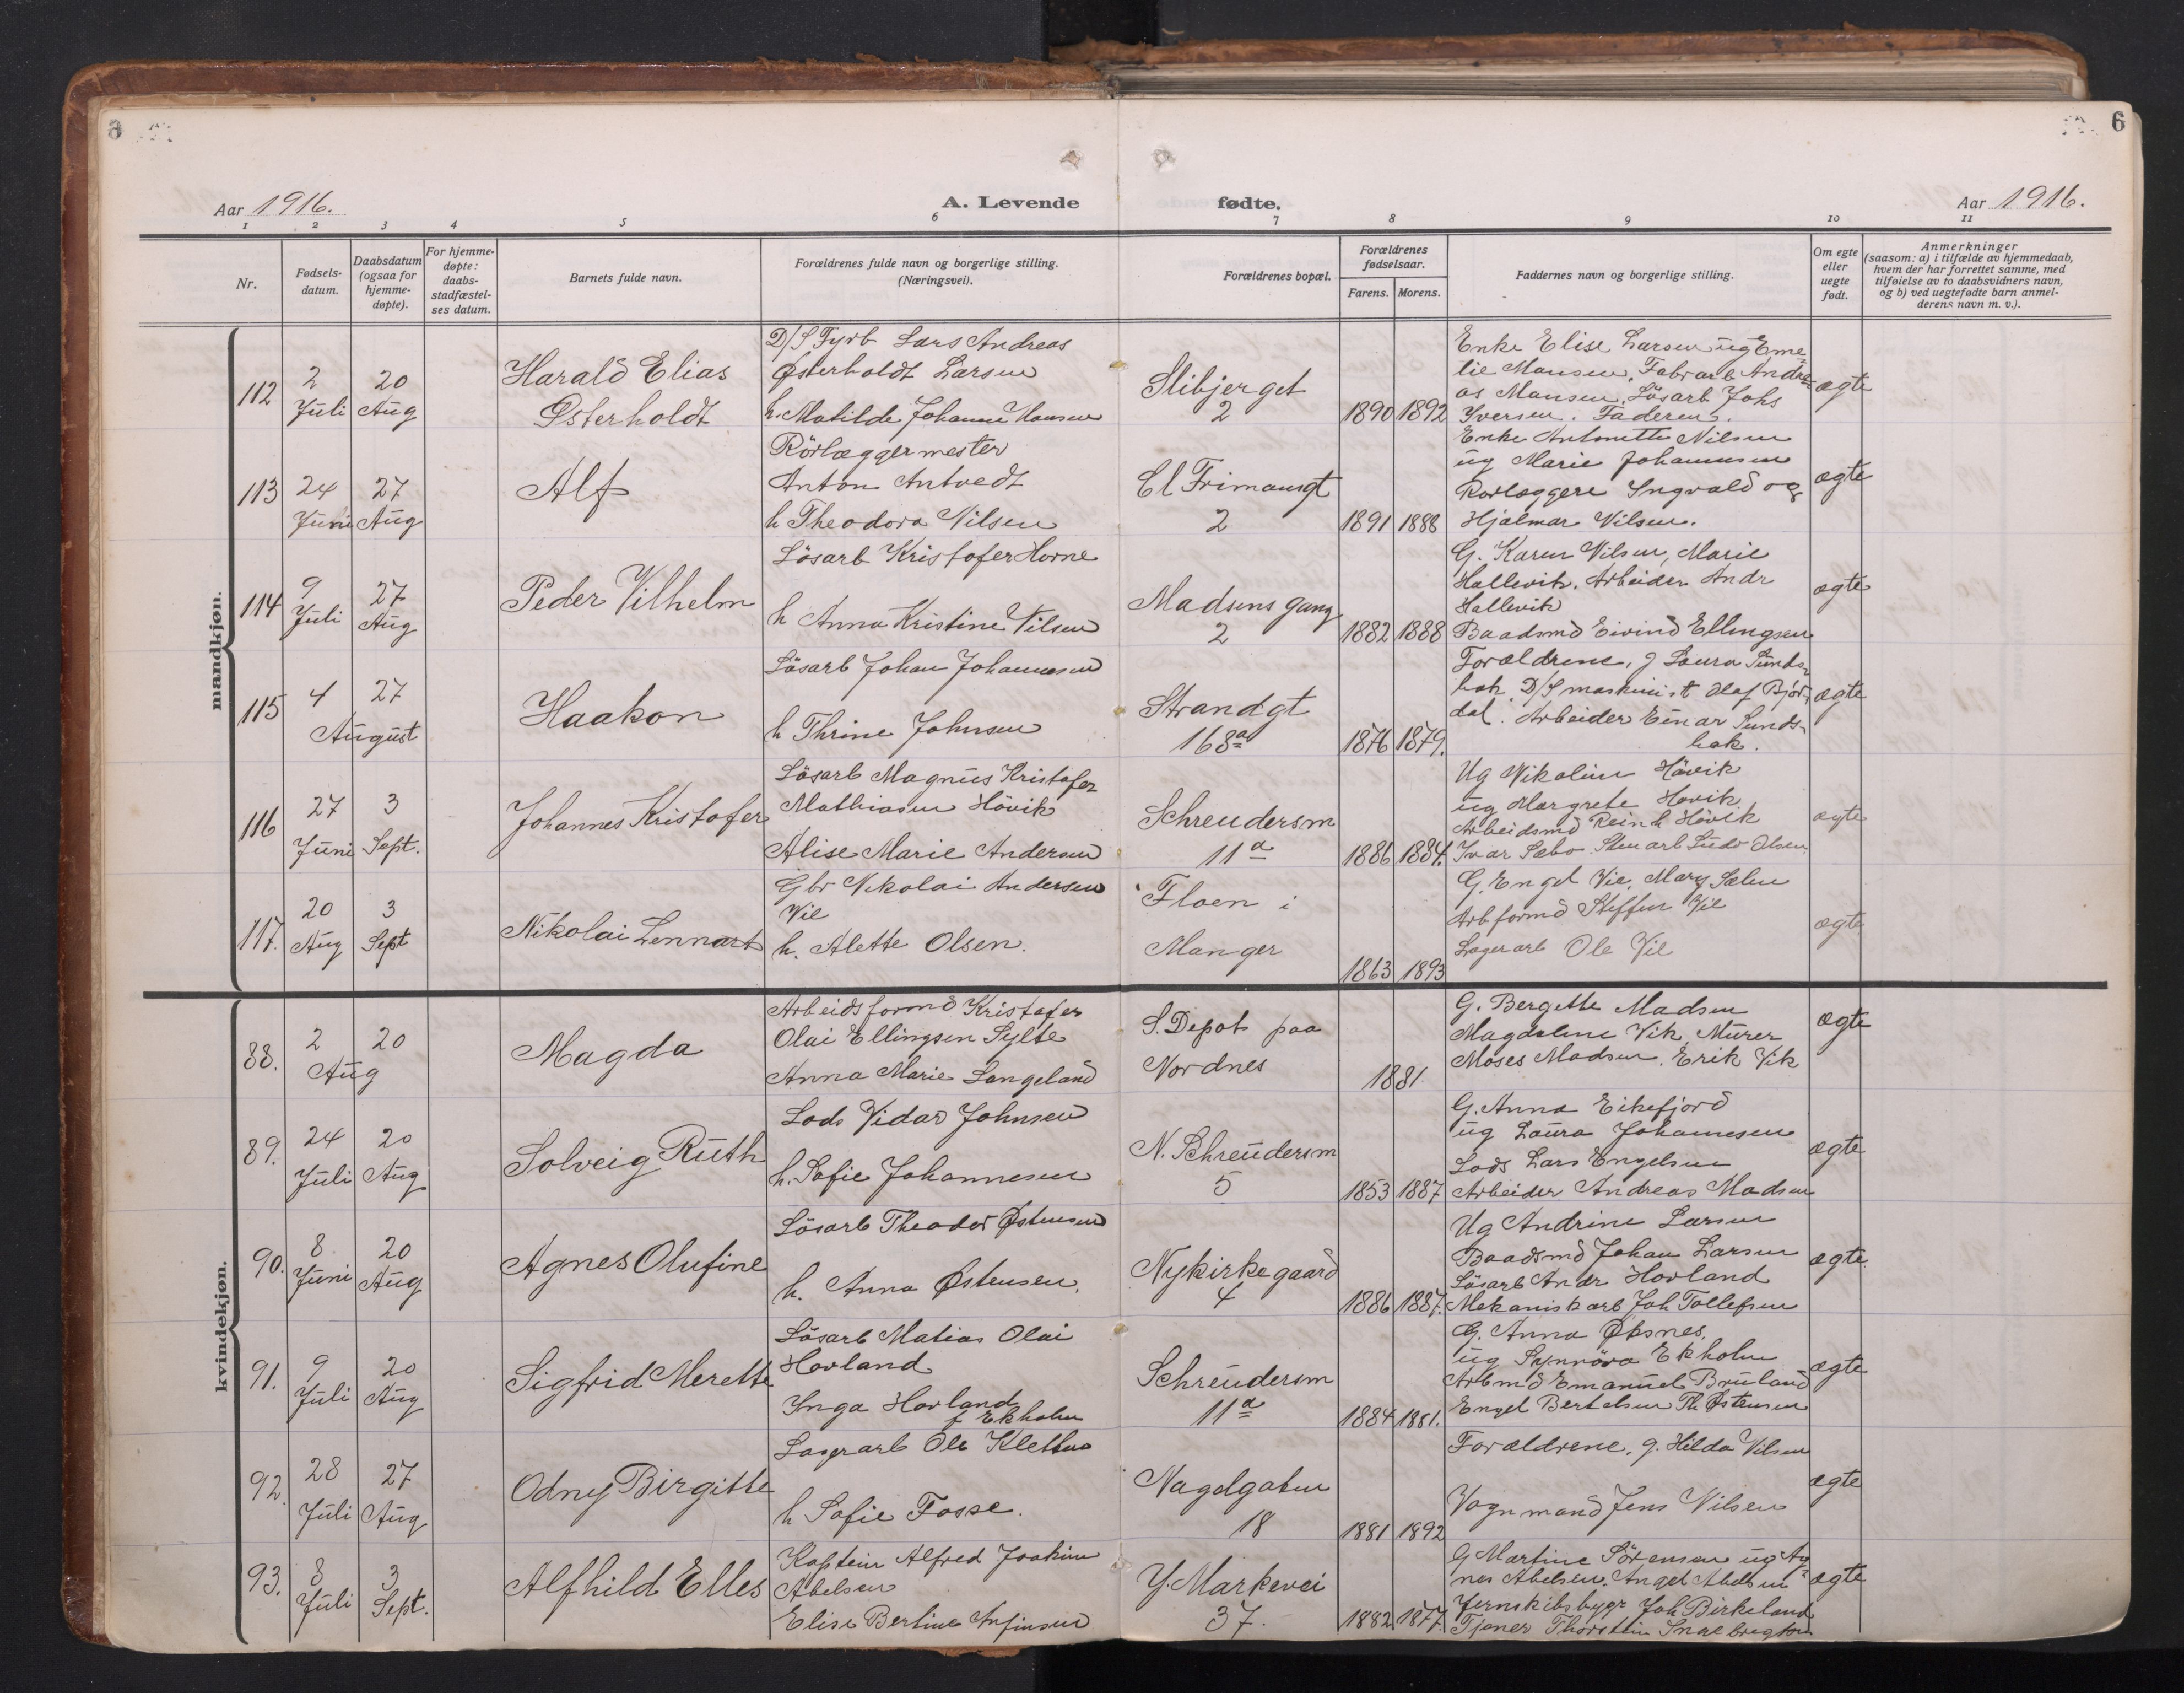 6
6
Aar 1916.
A. Levende
fødte.
Aar 1916.
1 2 3 4 5 6 7 8 9 10 11
Nr.
Fødsels-
datum.
Daabsdatum
(ogsaa for
hjemme-
døpte).
For hjemme-
døpte:
daabs-
stadfæstel-
ses datum.
Barnets fulde navn.
Forældrenes fulde navn og borgerlige stilling.
(Næringsvei).
Forældrenes bopæl.
Forældrenes
fødselsaar.
Farens. Morens.
Faddernes navn og borgerlige stilling.
Om egte
eller
uegte
født.
Anmerkninger
(saasom: a) i tilfælde av hjemmedaab,
hvem der har forrettet samme, med
tilføielse av to daabsvidners navn,
og b) ved uegtefødte barn anmel-
derens navn m. v.).
mandkjøn.
112
2
Juli
20
Aug
Harald Elias
Østerholdt
D/S Fyrb Lars Andreas
Østerholdt Larsen
h. Matilde Johanne Monsen
Slibjerget
2
1890 1892
Enke Elise Larsen ug Eme
lie Monsen, Fabrarb Andre-
as Monsen, Lösarb Johs
Iversen. Faderen.
ægte
113
24
Juni
27
Aug
Alf
Rörlæggermester
Anton Antvedt
h Theodora Nilsen
Cl Frimansgt
2
1891 1888
Enke Antonette Nilsen
ug Marie Johannesen
Rorlæggere Ingvald og
Hjalmar Nilsen.
ægte
114
9
Juli
27
Aug
Peder Vilhelm
Lösarb Kristofer Horne
h Anna Kristine Nilsen
Madsens gang
2
1882 1888
G. Karen Nilsen, Marie
Hallevik. Arbeider Andr
Hallevik
Baadsmd Eivind Ellingsen
ægte
115
4
27
August
Haakon
Lösarb Johan Johannesen
h Thrine Johnsen
Strandgt
168a
1876 1879.
Forældrene, g Laura Sunds-
bak, D/S maskinist Olaf Bjór-
dal. Arbeider Einar Sunds-
bak.
ægte
116
27
Juni
3
Sept.
Johannes Kristofer
Lösarb Magnus Kristofer
Mathiasen Hövik
Alise Marie Andersen
Schreudersm
11a
1886 1884.
Ug Nikoline Hövik
ug Margrete Hovik
Arbeidsmd Reinh Hövik
Ivar Sæbo. Stenarb Ludv Olsen
ægte
117.
20
Aug
3
Sept
Nikolai Lennart
Gbr Nikolai Andersen
Vie
h. Alette Olsen.
Floen i
Manger
1863 1893
G. Engel Vie, Mary Sælen
Arbformd Steffen Vie
Lagerarb Ole Vie
ægte
kvindekjøn.
88.
2
20
Aug
Magda
Arbeidsformd Kristofer
Olai Ellingsen Sylte
Anna Marie Langeland
S. Depot paa
Nordnes
1881
G. Bergitte Madsen
Magdalene Vik, Murer
Moses Madsen, Erik Vik
ægte
89.
24
Juli
20
Aug
Solveig Ruth
Lods Vidar Johnsen
h. Sofie Johannesen
N. Schreudersm
5
1853 1887
G. Anna Eikefjord
ug Laura Johannesen
Lods Lars Engelsen
Arbeider Andreas Madsen
ægte
90.
8
Juni
20
Aug
Agnes Olufine
Lösarb Theodor Østensen
h. Anna Østensen.
Nykirkegaard
4
1886 1887.
Ug Andrine Larsen
Baadsmd Johan Larsen
Lösarb Andr Hovland
Mekanisk arb Joh Tollefsen
ægte.
91.
9
Juli
20
Aug
Sigfrid Merette
Lösarb Matias Olai
Hovland
Inga Hovland
f Ekholm
Schreudersm
11a
1884 1881.
G. Anna Øksnes,
ug Synnöva Ekholm
Arbmd Emanuel Bruland
Engel Bertelsen Th Østensen
ægte
92.
28
Juli
27
Aug
Odny Birgitte
Lagerarb Ole Kletten
h Sofie Fosse.
Nagelgaten
18
1881 1892
Forældrene, g. Hilda Nilsen
Vognmand Jens Nilsen
ægte
93.
8
Juli
3
Sept.
Alfhild Elles
Kaptein Alfred Joakim
Abelsen
Elise Bertine Anfinsen
Y. Markevei
37.
1882 1877.
G Martine Sörensen ug Ag
nes Abelsen. Angel Abelsen
Jernskibsbygr Joh Birkeland
Tjener Thorstein Ingebrigtsen
ægte